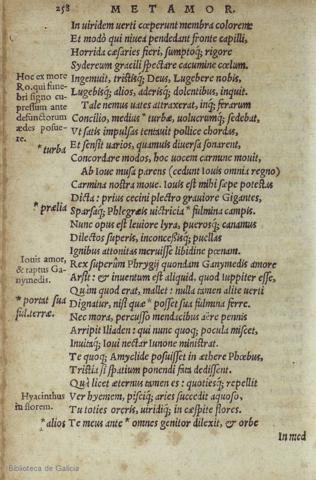 258 METAMOR.
In uiridem uerti cœperunt membra colorem:
Et modò qui niuea pendebant fronte capilli,
Horrida cæsaries fieri, sumptoq; rigore
Sydereum gracili spectare cacumine cœlum.
Hoc ex more
Ro. qui fune-
bri signo cu-
pressum ante
defunctorum
ædes posue-
re.
Ingemuit, tristisq; Deus, Lugebere nobis,
Lugebisq; alios, aderisq; dolentibus, inquit.
Tale nemus uates attraxerat, inq; ferarum
Concilio, medius * turbæ, uolucrumq; sedebat,
Vt satis impulsas tentauit pollice chordas,
* turba
Et sensit uarios, quamuis diuersa sonarent,
Concordare modos, hoc uocem carmine mouit,
Ab Ioue musa parens (cedunt Iouis omnia regno)
Carmina nostra moue. Iouis est mihi sæpe potestas
Dicta: prius cecini plectro grauiore Gigantes,
* prælia
Sparsaq; Phlegræis uictricia * fulmina campis.
Nunc opus est leuiore lyra, puerosq; canamus
Dilectos superis, inconcessisq; puellas
Ignibus attonitas meruisse libidine pœnam.
Iouis amor,
& raptus Ga-
nymedis.
Rex superûm Phrygij quondam Ganymedis amore
Arsit: & inuentum est aliquid, quod Iuppiter esse,
Quàm quod erat, mallet: nulla tamen alite uerti
* portat sua
ful. terræ.
Dignatur, nisi quæ * posset sua fulmina ferre.
Nec mora, percusso mendacibus aëre pennis
Arripit Iliaden: qui nunc quoq; pocula miscet,
Inuitaq; Ioui nectar Iunone ministrat.
Te quoq; Amyclide posuisset in æthere Phœbus,
Tristia si spatium ponendi fata dedissent.
Quà licet æternus tamen es: quotiesq; repellit
Hyacinthus
in florem.
Ver hyemem, pisciq; aries succedit aquoso,
Tu toties oreris, uiridiq; in cæspite flores.
* alios
Te meus ante * omnes genitor dilexit, & orbe
In med
Biblioteca de Galicia